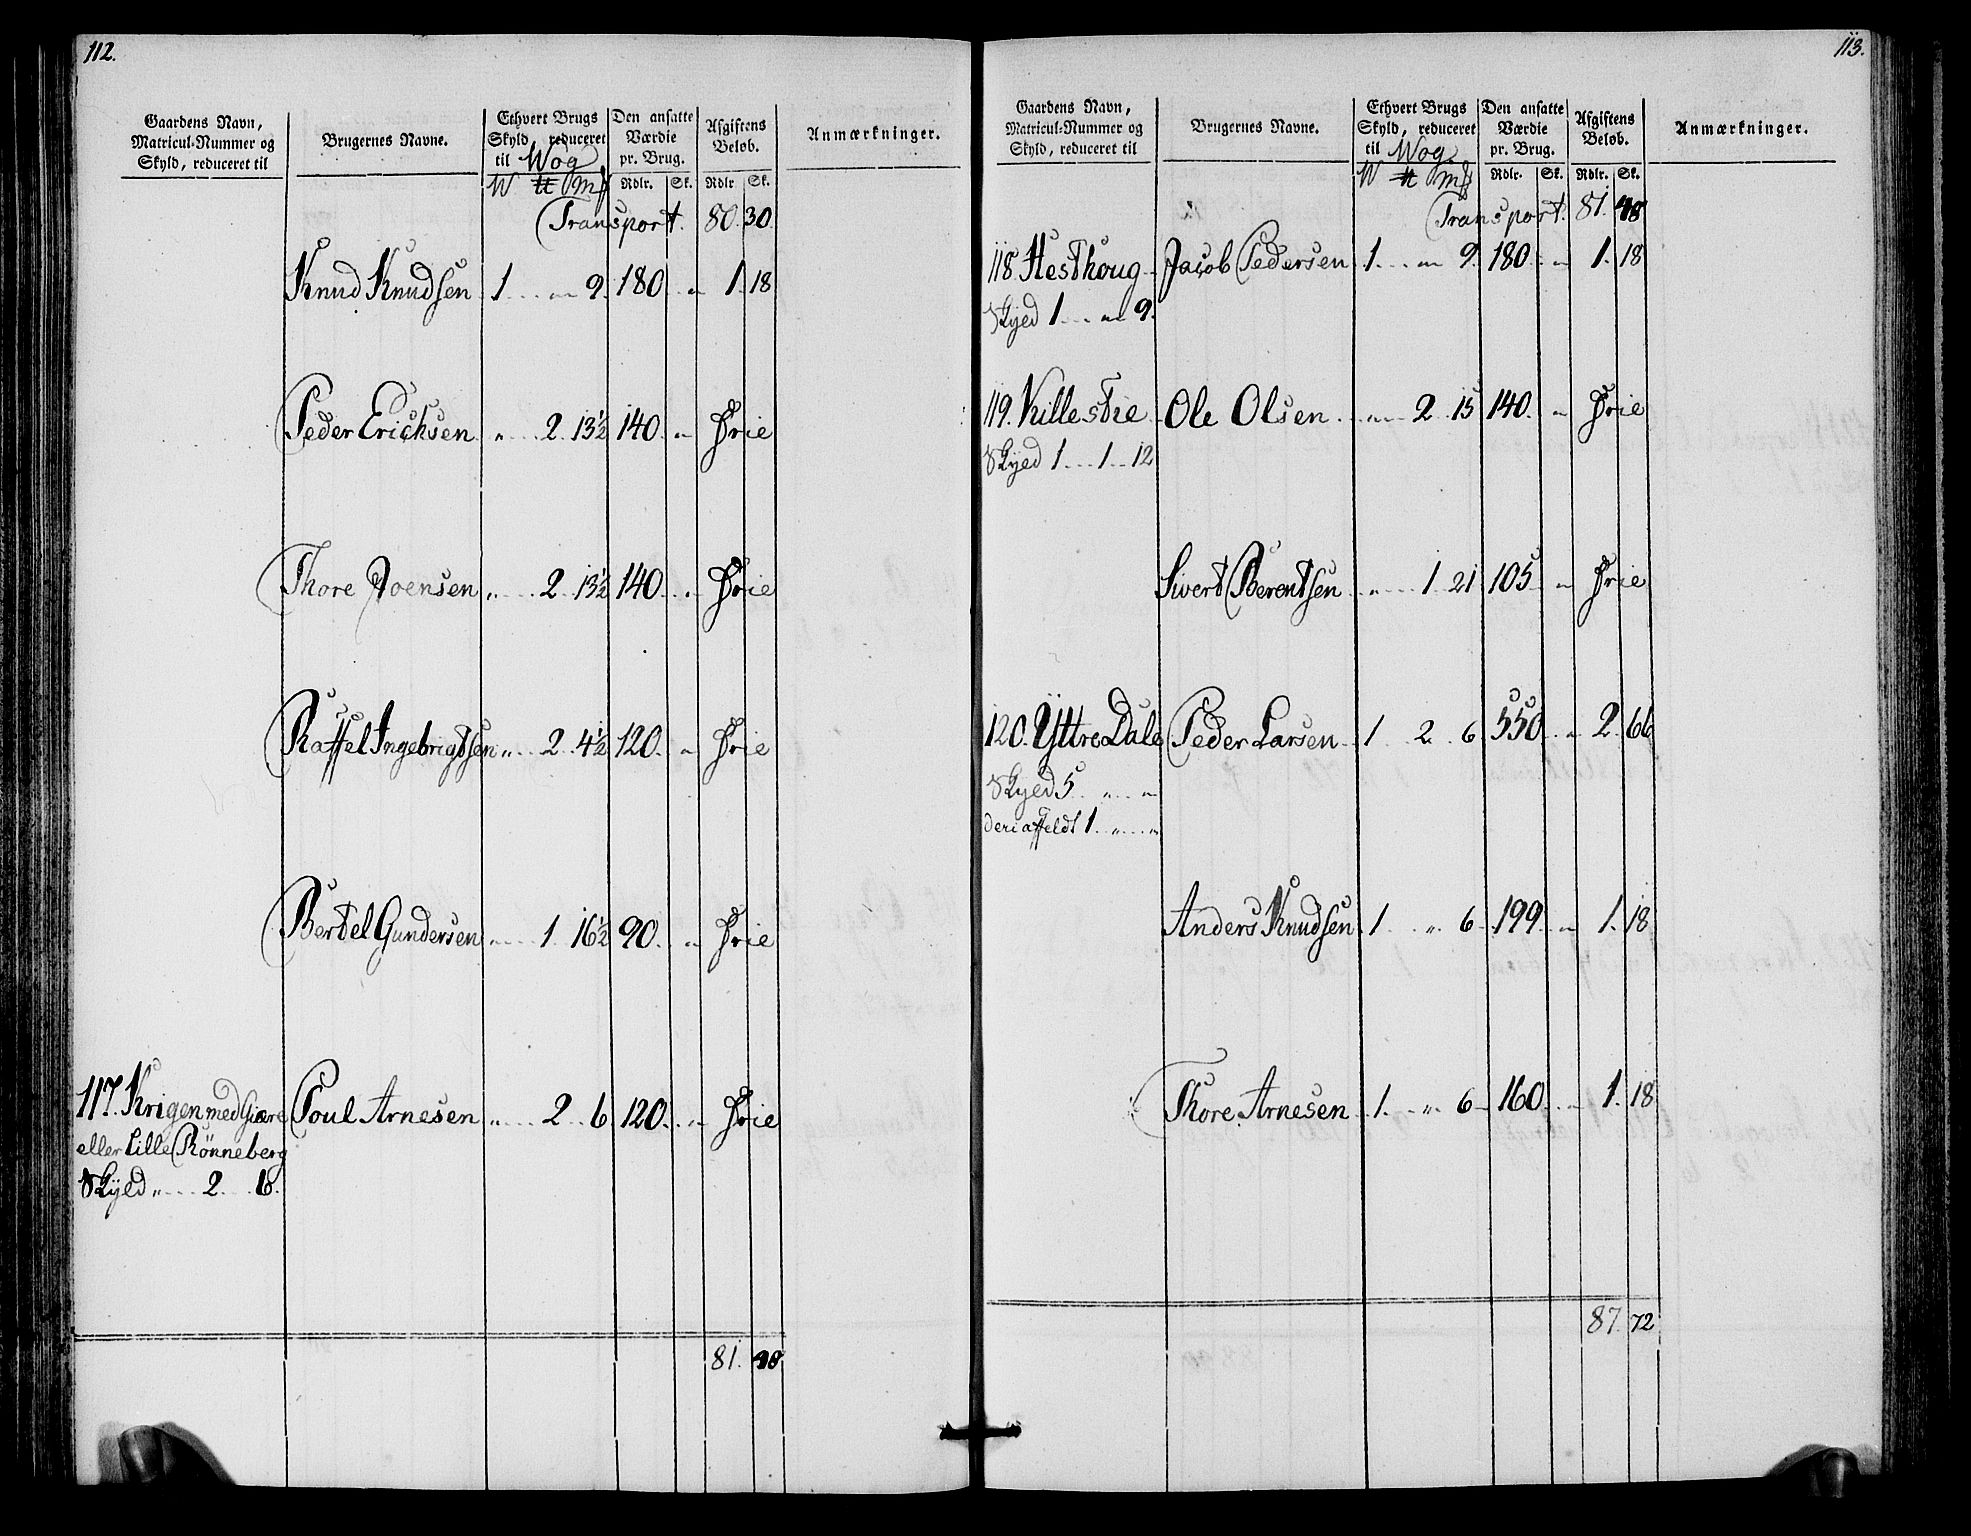 112.
Gaardens Navn, Matricul-Nummer og Skyld, reduceret til
Brugernes Navne.
Ethvert Brugs Skyld, reduceret til Wog
W ℔ m
Den ansatte Værdie pr. Brug.
Rdlr. Sk.
Afgiftens Beløb.
Rdlr Sk.
Anmærkninger.
Transport. 80. 30.
Knud Knudsen 1 „ 9. 180 „ 1. 18
Peder Erichsen „ 2. 13½ 140. „ Frie
Thore Joensen „ 2. 13½ 140. „ Frie
Raffel Ingebrigdsen „ 2. 4½ 120. „ Frie
Bertel Gundersen „ 1. 16½ 90. „ Frie
117. Krigen med Giære Poul Arnesen „ 2. 6 120. „ Frie
eller Lille Rönneberg
Skyld „ 2. 6.
81. 48
113.
Gaardens Navn, Matricul-Nummer og Skyld, reduceret til
Brugernes Navne.
Ethvert Brugs Skyld, reduceret til Wog
W ℔ m
Den ansatte Værdie pr. Brug.
Rdlr. Sk.
Afgiftens Beløb.
Rdlr. Sk.
Anmærkninger.
Transport. 81. 48
118. Hesthoug Jacob Pedersen 1. „ 9. 180 „ 1. 18
Skyld 1 „ 9.
119. Killestie Ole Olsen „ 2. 15 140. „ Frie
Skyld 1. 1. 12
Sivert Berentsen „ 1. 21 105 „ Frie
120. Yttre Dale Peder Larsen 1 2. 6. 550. „ 2. 66
Skyld 5. „ „
deri affeldt 1. „ „
Anders Knudsen 1. „ 6. 199. „ 1. 18
Thore Arnesen 1. „ 6 160. „ 1. 18
87. 72